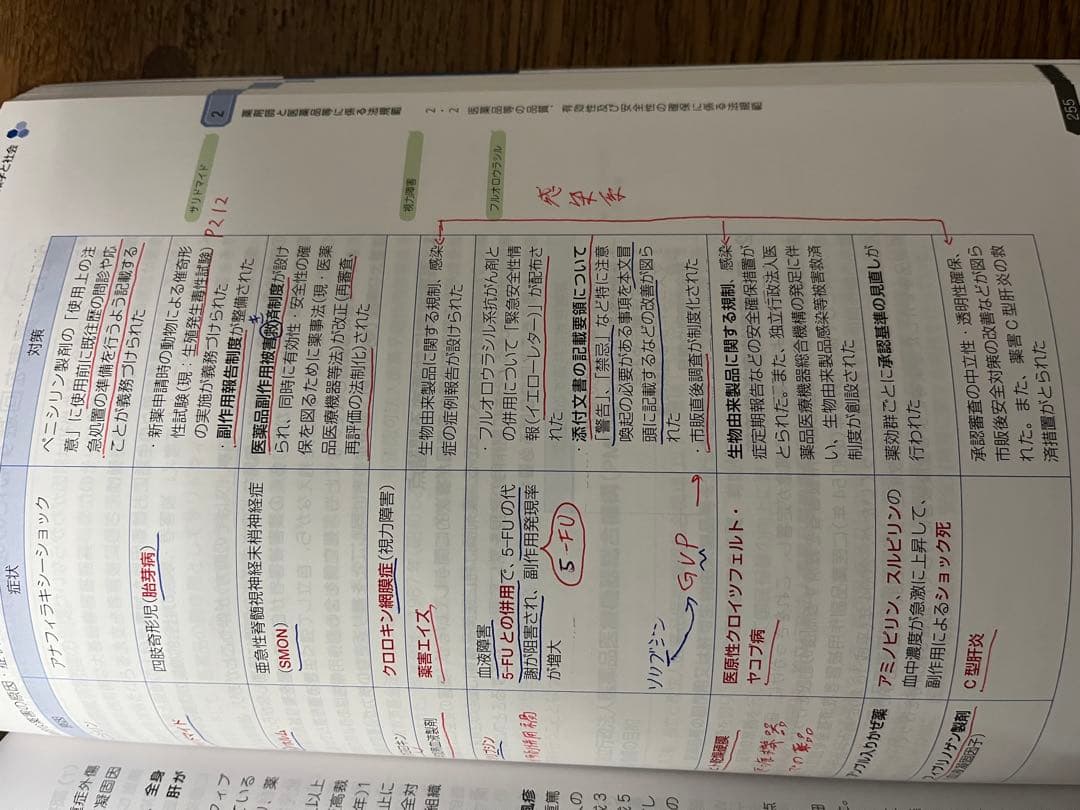 薬学と社会
2
薬剤師と医薬品等に係る法規範
2・2 医薬品等の品質、有効性及び安全性の確保に係る法規範
255
サリドマイド
P212
視力障害
フルオロウラシル
感染家
症状
対策
アナフィラキシーショック
ペニシリン製剤の「使用上の注
意」に使用前に既往歴の問診や応
急処置の準備を行うよう記載する
ことが義務づけられた
四肢奇形児(胎芽病)
・新薬申請時の動物による催奇形
性試験(現:生殖発生毒性試験)
の実施が義務づけられた
・副作用報告制度が整備された
亜急性脊髄視神経末梢神経症
(SMON)
医薬品副作用被害救済制度が設け
られ、同時に有効性・安全性の確
保を図るために薬事法(現:医薬
品医療機器等法)が改正(再審査、
再評価の法制化)された
クロロキン網膜症(視力障害)
薬害エイズ
生物由来製品に関する規制、感染
症の症例報告が設けられた
血液障害
5-FUとの併用で、5-FUの代
謝が阻害され、副作用発現率
が増大
5-FU
ソリブジン
GVP
・フルオロウラシル系抗がん剤と
の併用について「緊急安全性情
報(イエローレター)」が配布さ
れた
・添付文書の記載要領について
「警告」、「禁忌」など特に注意
喚起の必要がある事項を本文冒
頭に記載するなどの改善が図ら
れた
・市販直後調査が制度化された
ヒト乾燥硬膜
医原性クロイツフェルト・
ヤコブ病
生物由来製品に関する規制、感染
症定期報告などの安全確保措置が
とられた。また、独立行政法人医
薬品医療機器総合機構の発足に伴
い、生物由来製品感染等被害救済
制度が創設された
アンプル入りかぜ薬
アミノピリン、スルピリンの
血中濃度が急激に上昇して、
副作用によるショック死
薬効群ごとに承認基準の見直しが
行われた
フィブリノゲン製剤
(血液凝固因子)
C型肝炎
承認審査の中立性・透明性確保、
市販後安全対策の改善などが図ら
れた。また、薬害C型肝炎の救
済措置がとられた